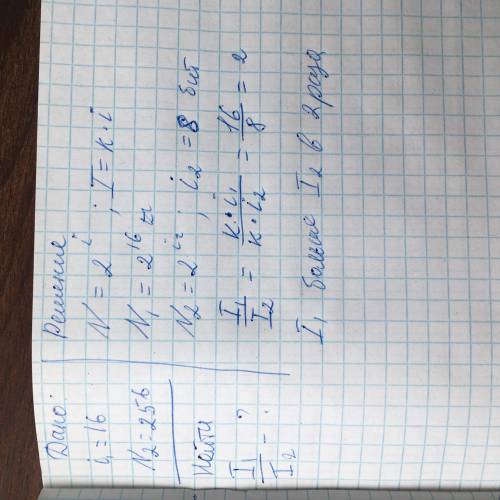 Дано:
i₁ = 16
N₂ = 256
Найти
I₁/I₂ - ?
Решение
N = 2^i ; I = к · i
N₁ = 2^16
N₂ = 2^i₂ ; i₂ = 8 бит
I₁/I₂ = к · i₁/к · i₂ = 16/8 = 2
I₁ больше I₂ в 2 раза